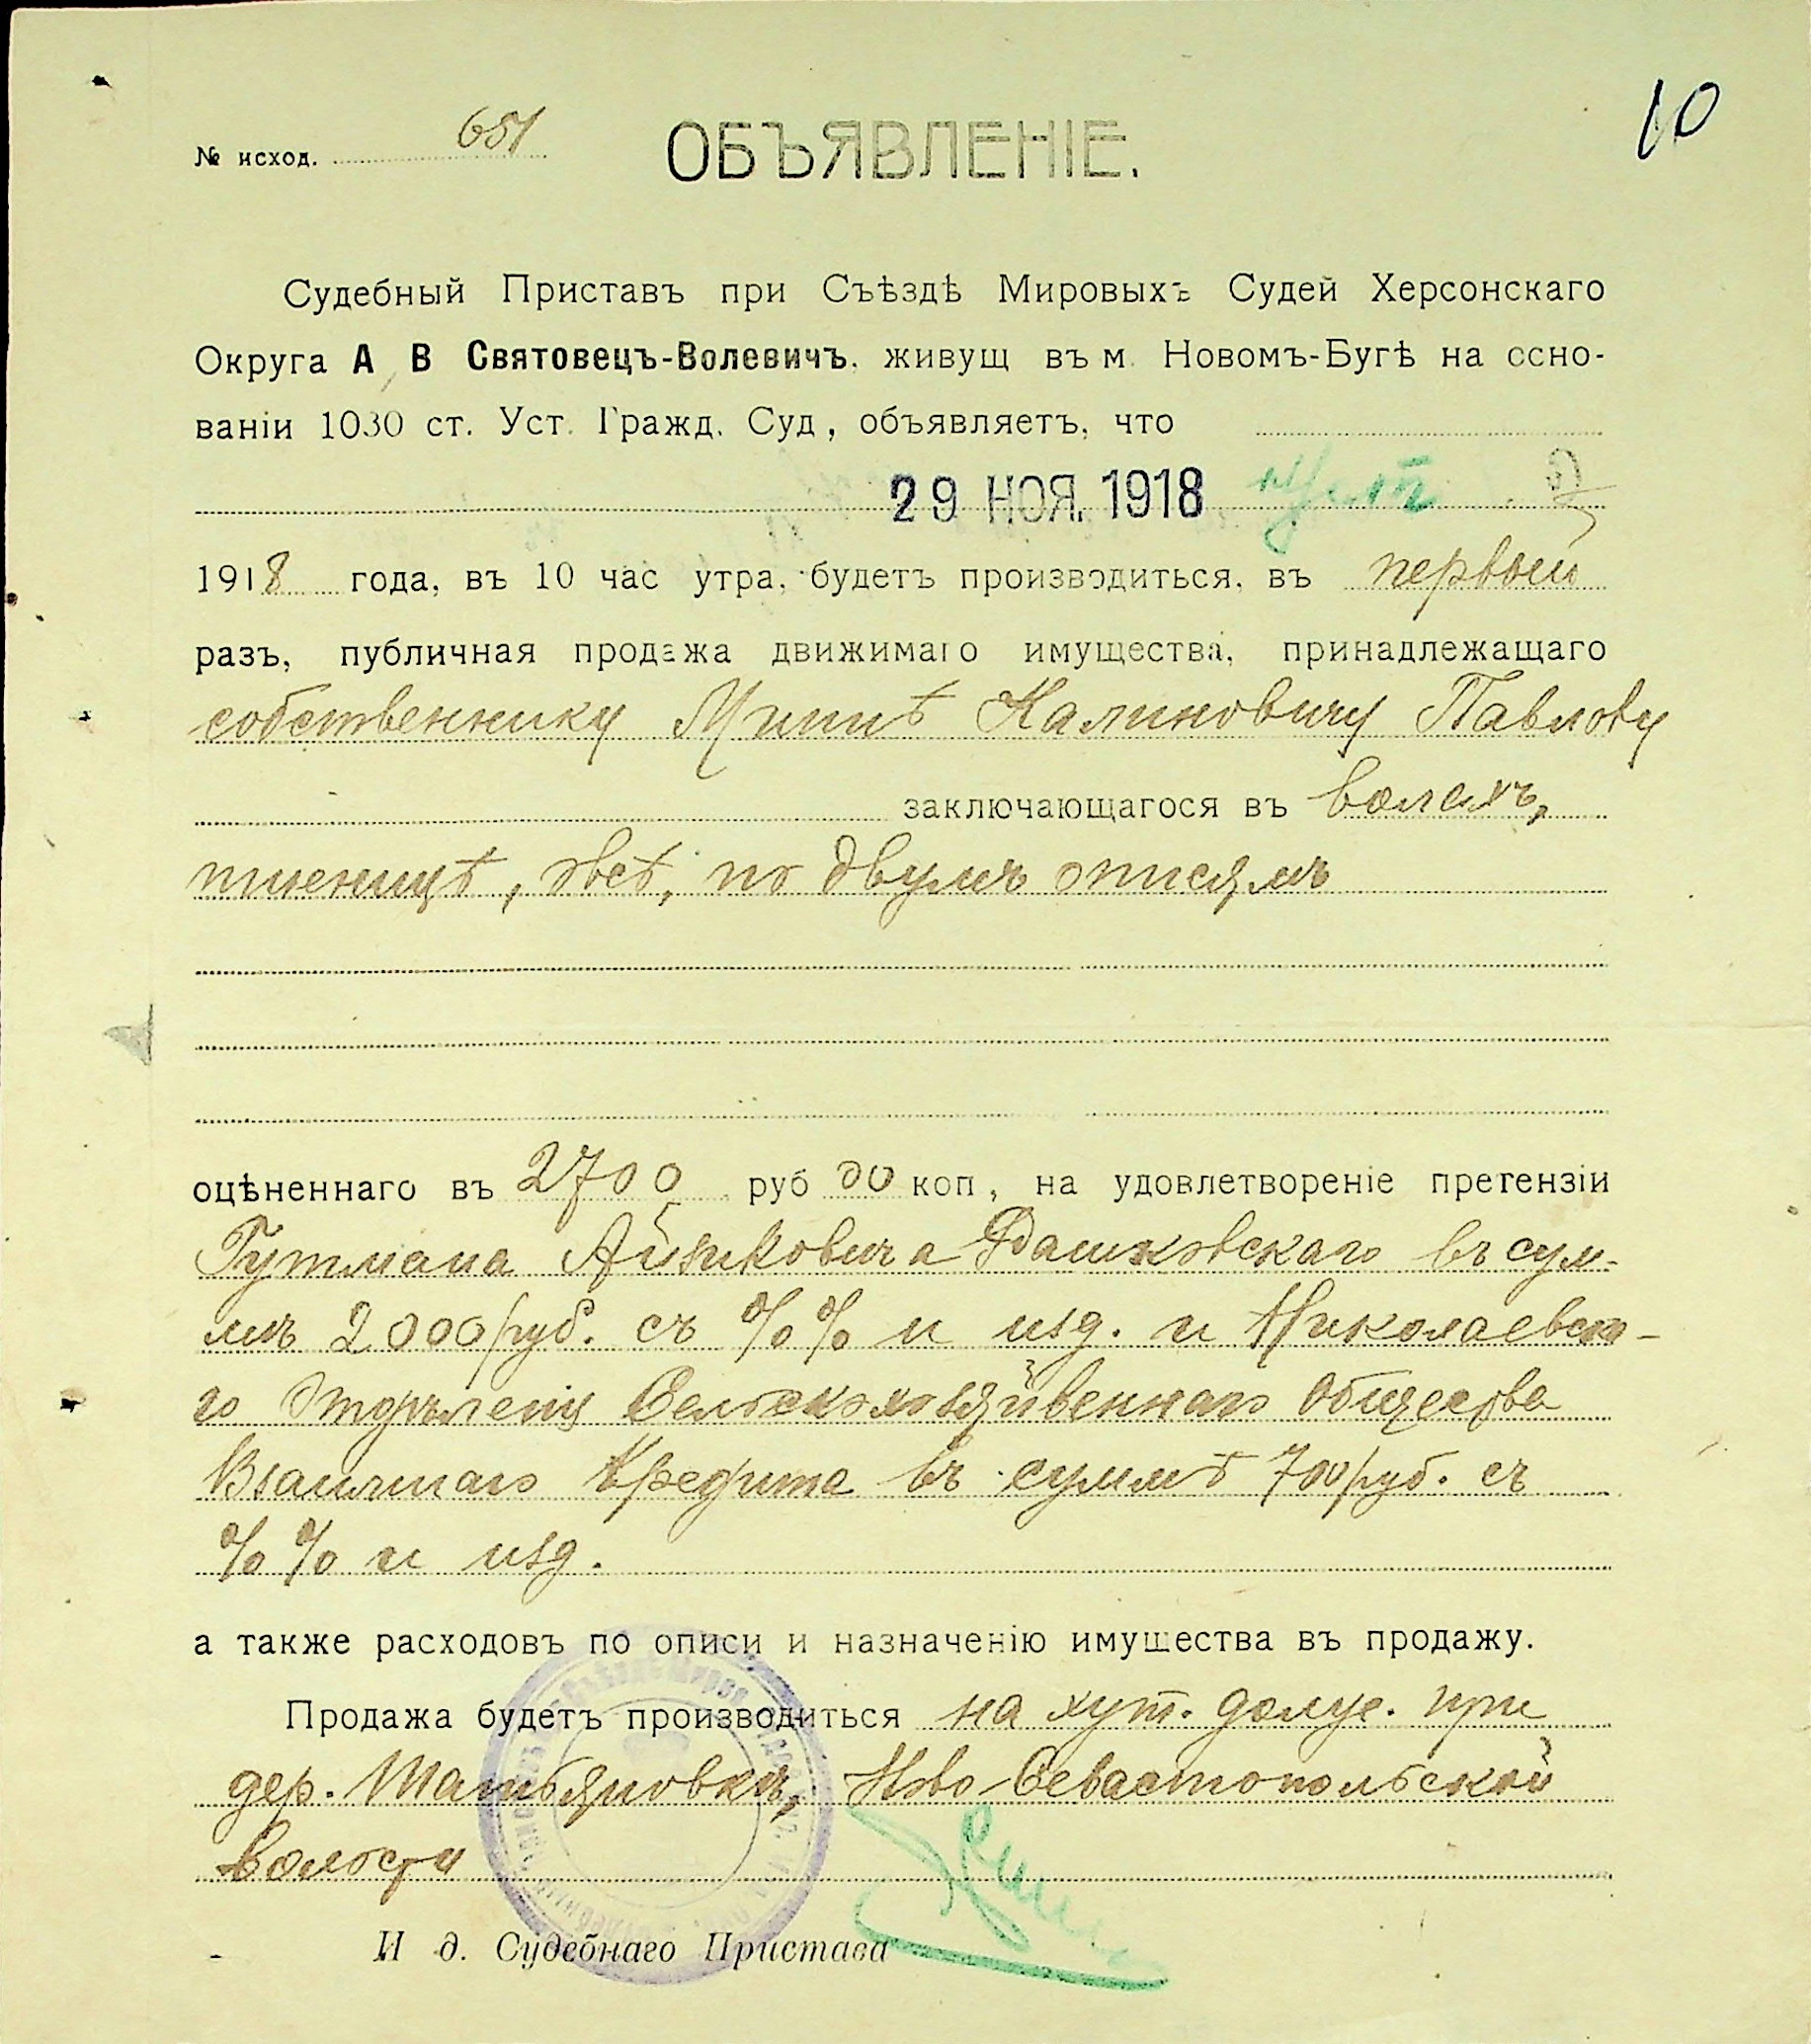 10
№ исход. 651
ОБЪЯВЛЕНІЕ.
Судебный Приставъ при Съѣздѣ Мировыхъ Судей Херсонскаго
Округа А В Святовецъ-Волевичъ, живущ въ м. Новомъ-Бугѣ на осно-
ваніи 1030 ст. Уст. Гражд. Суд, объявляетъ, что
29 НОЯ. 1918
1918 года, въ 10 час утра, будетъ производиться, въ первый
разъ, публичная продажа движимаго имущества, принадлежащаго
собственнику Калиновичу Павлову
заключающагося въ волахъ,
пшеницѣ, овсѣ, по двумъ описямъ
оцѣненнаго въ 2700 руб 00 коп, на удовлетвореніе претензіи
Гутмана Айзиковича Дашковскаго въ сум-
мѣ 2000 руб. съ %% и изд. и Николаевска-
го Сельскохозяйвеннаго Общества
Взаимнаго Кредита въ суммѣ 700 руб. съ
%% и изд.
а также расходовъ по описи и назначенію имущества въ продажу.
Продажа будетъ производиться на хут. должн. при
дер. Татьяновкѣ, Ново-Севастопольской
волости
И д. Судебнаго Пристава